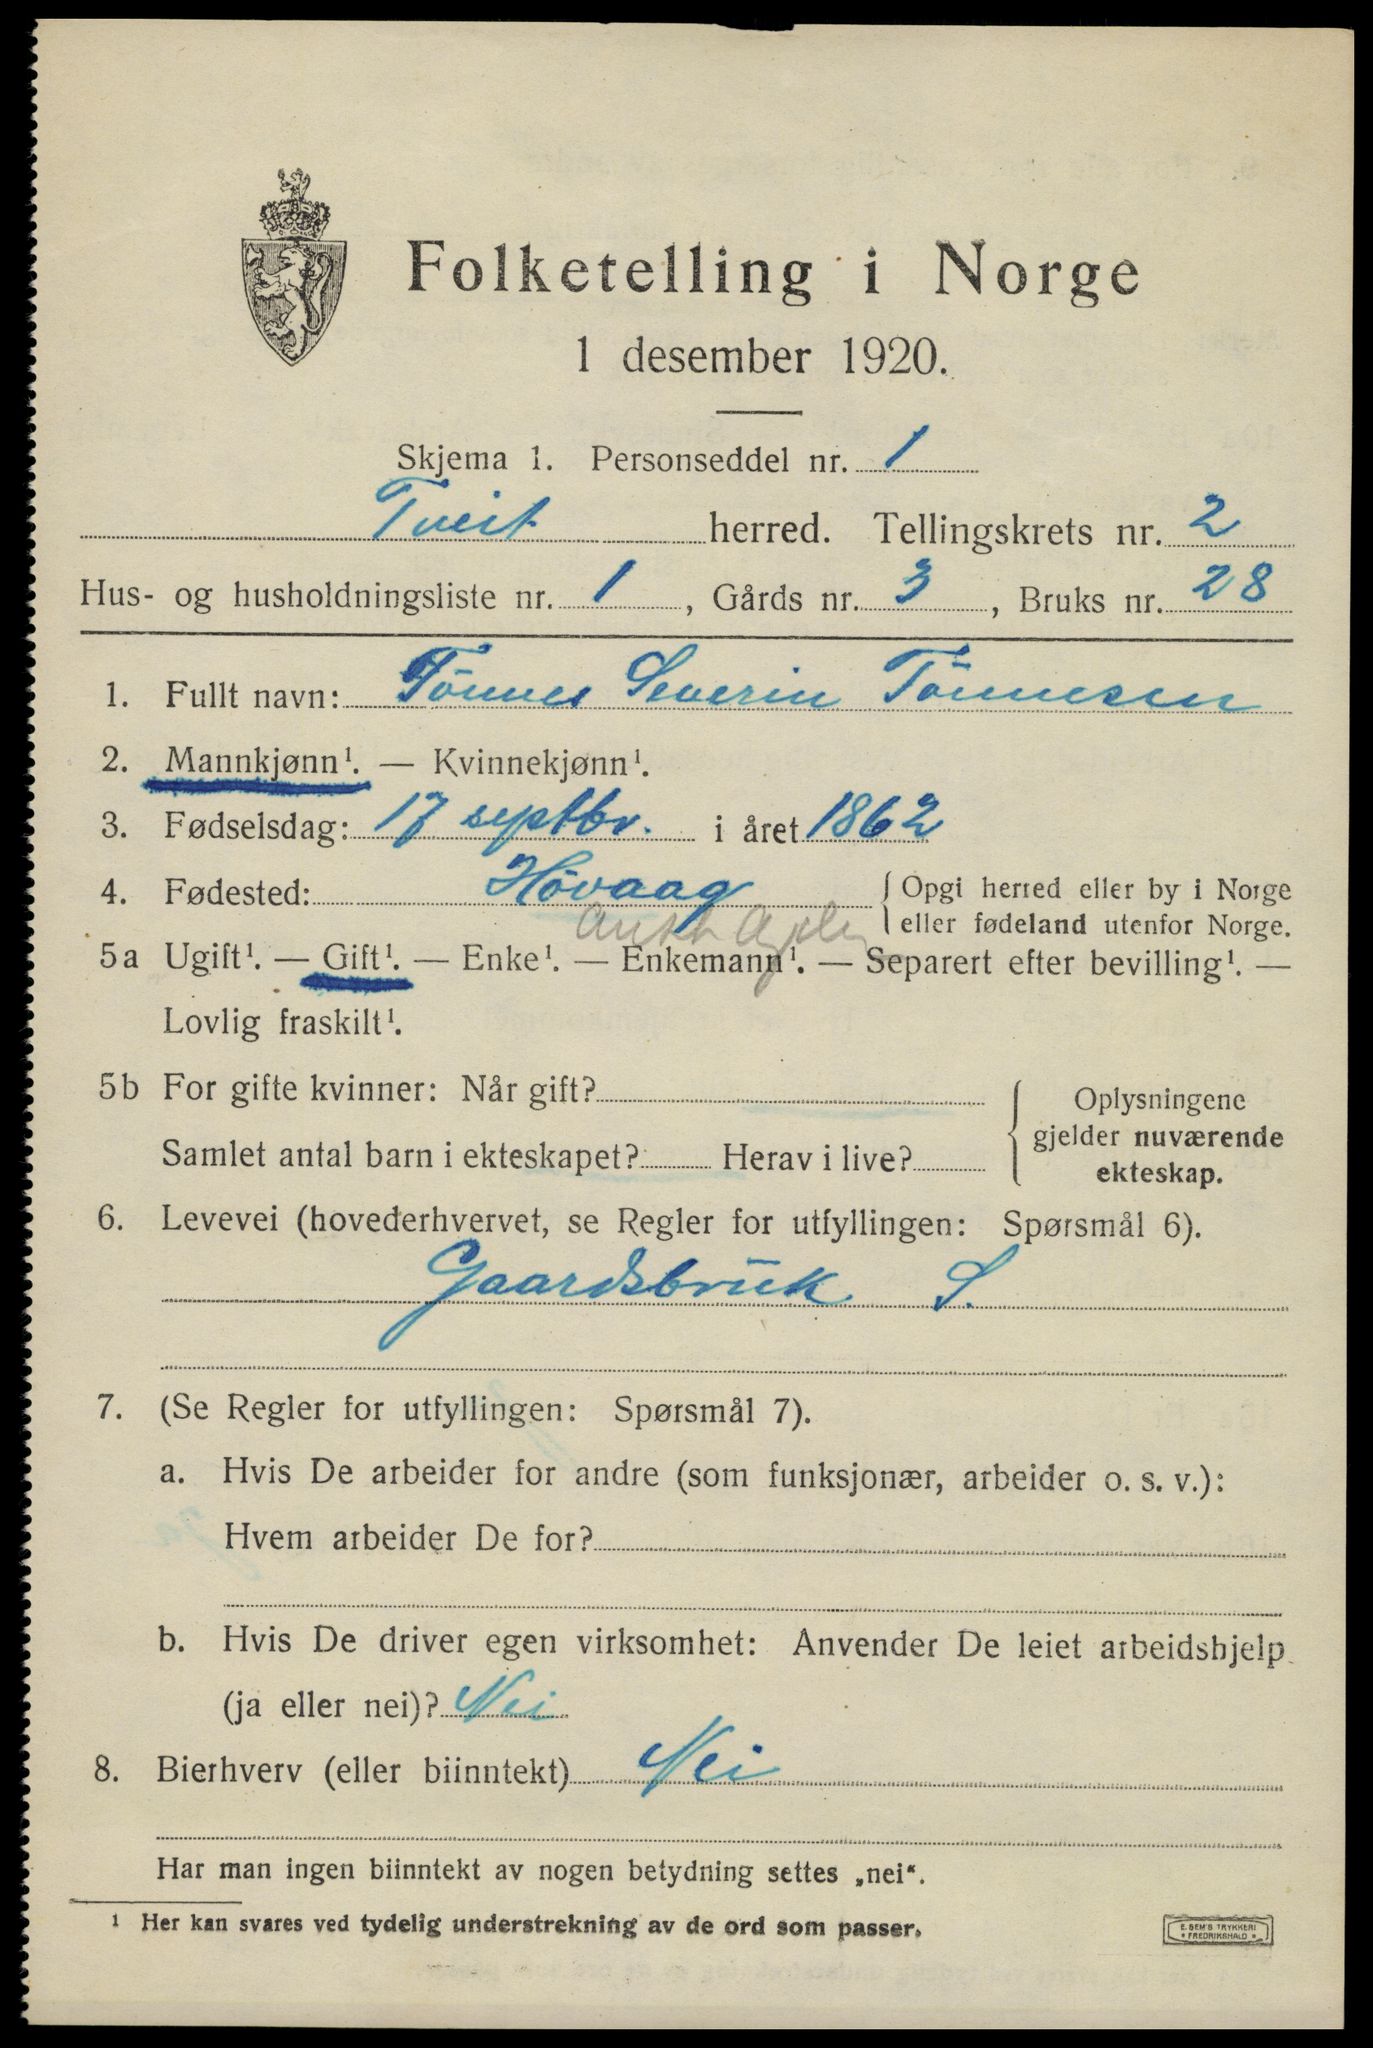 Folketelling i Norge
1 desember 1920.
Skjema 1. Personseddel nr. 1
Tveit herred. Tellingskrets nr. 2
Hus- og husholdningsliste nr. 1, Gårds nr. 3, Bruks nr. 28
1. Fullt navn: Tönnes Severin Tönnesen
2. Mannkjønn¹. — Kvinnekjønn¹.
3. Fødselsdag: 17 septbr. i året 1862
4. Fødested: Hövaag { Opgi herred eller by i Norge
eller fødeland utenfor Norge.
5a Ugift¹. — Gift¹. — Enke¹. — Enkemann¹. — Separert efter bevilling¹. —
Lovlig fraskilt¹.
5b For gifte kvinner: Når gift?
Samlet antal barn i ekteskapet? Herav i live?
{ Oplysningene
gjelder nuværende
ekteskap.
6. Levevei (hovederhvervet, se Regler for utfyllingen: Spørsmål 6).
Gaardsbruk S.
7. (Se Regler for utfyllingen: Spørsmål 7).
a. Hvis De arbeider for andre (som funksjonær, arbeider o. s. v.):
Hvem arbeider De for?
b. Hvis De driver egen virksomhet: Anvender De leiet arbeidshjelp
(ja eller nei)? Nei
8. Bierhverv (eller biinntekt) Nei
Har man ingen biinntekt av nogen betydning settes „nei“.
¹ Her kan svares ved tydelig understrekning av de ord som passer.
E. SEM'S TRYKKERI
* FREDRIKSHALD *